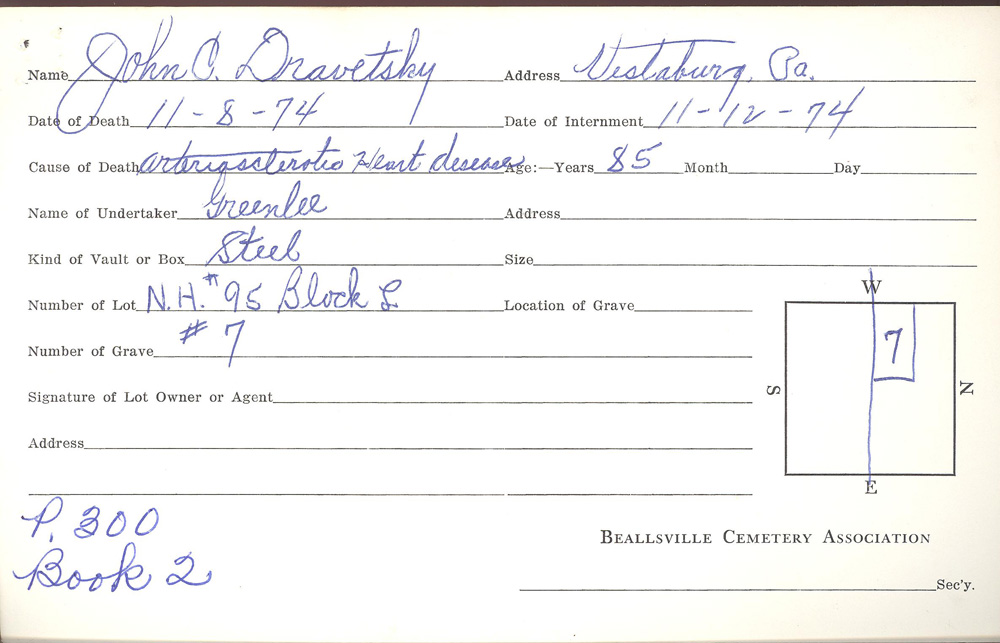 Name John C. Dravetsky Address Vestaburg, Pa.
Date of Death 11-8-74 Date of Internment 11-12-74
Cause of Death Arteriosclerotic Heart disease Age:—Years 85 Month Day
Name of Undertaker Greenlee Address
Kind of Vault or Box Steel Size
Number of Lot N.H. # 95 Block L Location of Grave
Number of Grave # 7
Signature of Lot Owner or Agent
Address
W
7
S
N
E
P. 300
Book 2
BEALLSVILLE CEMETERY ASSOCIATION
Sec'y.